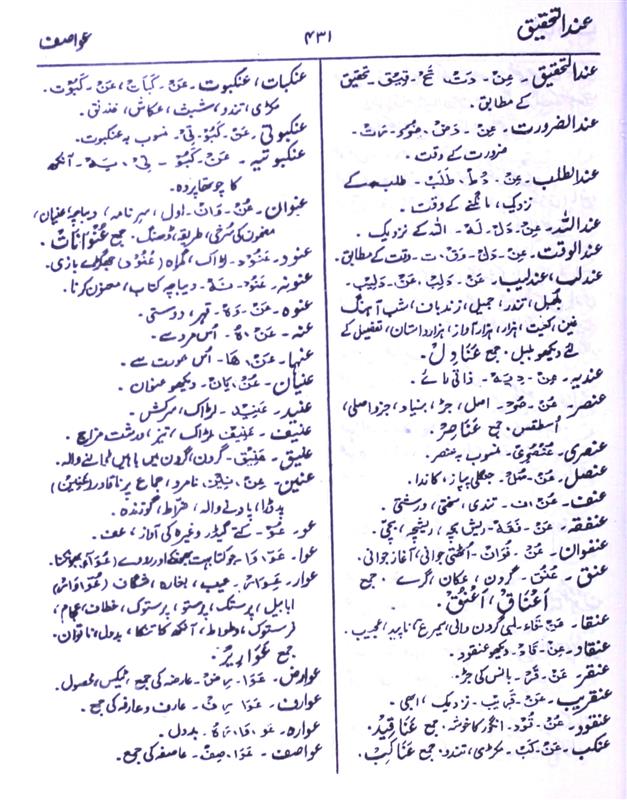 عندالتحقیق
۴۳۱
عواصف
عندالتحقیق۔ عِن۔ دَت۔ تَح۔ قِیق۔ تحقیق
کے مطابق۔
عندالضرورت۔ عِن۔
ضرورت کے وقت۔
عندالطلب۔ عِن۔ دُط۔ طَلَب۔ طلب کے
نزدیک، مانگنے کے وقت۔
عنداللہ۔ عِن۔ دَل۔ لَہ۔ اللہ کے نزدیک۔
عندالوقت۔ عِن۔ دَل۔ وَق۔ ت۔ وقت کے مطابق۔
عندلب، عندلیب۔ عَن۔ دَلِب، عَن۔ دَلِیب۔
بلبل، تندر، جمیل، زندباف، شب آہنگ
ہزار، ہزار آواز، ہزار داستان، تفصیل کے
لئے دیکھو بلبل۔ جمع عَنَادِل۔
عندیہ۔ عِن۔ دِیَہ۔ ذاتی رائے۔
عنصر۔ عُن۔ صُر۔ اصل، جڑ، بنیاد، جزو اصلی،
اسطقس۔ جمع عَنَاصِر۔
عنصری۔ عُنصُرِی۔ منسوب بہ عنصر۔
عنصل۔ عُن۔ صُل۔ جنگلی پیاز، کاندا۔
عنف۔ عُن۔ ف۔ تندی، سختی، درشتی۔
عنفقہ۔ عَن۔ فَقَہ۔ ریش بچہ، ریشچہ، بچی۔
عنفوان۔ عُن۔ فُوَان۔ اٹھتی جوانی، آغاز جوانی۔
عنق۔ عُنُق۔ گردن، جمع
اَعْنَاق، اَعْنُق۔
عنقا۔ عَن۔ قَاء۔ لمبی گردن والی، سیمرغ، ناپید، عجیب۔
عنقاد۔ عِن۔ قَاد۔ دیکھو عنقود۔
عنقر۔ عَن۔ قَر۔ بانس کی جڑ۔
عنقریب۔ عَن۔ قَرِیب۔ نزدیک، ابھی۔
عنقود۔ عُن۔ قُود۔ انگور کا خوشہ۔ جمع عَنَاقِید۔
عنکب۔ عَن۔ کَب۔ مکڑی، تندو۔ جمع عَنَاکِب۔
عنکبات، عنکبوت۔ عَن۔ کَبَات، عَن۔ کَبُوت۔
مکڑی، تندو، شبث، عکاش، خدنق۔
عنکبوتی۔ عَن۔ کَبُو۔ تِی۔ منسوب بہ عنکبوت۔
عنکبوتیہ۔ عَن۔ کَبُو۔ تِی۔ یَہ۔ آنکھ
کا چوتھا پردہ۔
عنوان۔ عُن۔ وَان۔ اول، سرنامہ، دیباچہ، عنیان،
مضمون کی سُرخی، طریقہ، ڈھنگ۔ جمع عُنْوَانَات۔
عنود۔ عَنُود۔ لڑاک، گمراہ (عُنُود) جھگڑے بازی۔
عنونہ۔ دیباچہ کتاب، معنون کرنا۔
عنوہ۔ عَن۔ وَہ۔ قہر، دوستی۔
عنہ۔ عَن۔ ہُ۔ اُس مرد سے۔
عنہا۔ عَن۔ ھَا۔ اُس عورت سے۔
عنیان۔ عُن۔ یَان۔ دیکھو عنوان۔
عنید۔ عَنِید۔ لڑاک، سرکش۔
عنیف۔ عَنِیف۔ لڑاک، تیز، درشت مزاج۔
عنیق۔ عَنِیق۔ گردن، گردن میں باہیں ڈالنے والا۔
عنین۔ عِن۔ نِین۔ نامرد، جماع پر ناقادر (عنین)
گوزندہ۔
عو۔ عَو۔ کتے گیدڑ وغیرہ کی آواز، عف۔
عوا۔ عَو۔ وَا۔ جو کتا بہت بھونکے اور روئے (عُوَاء) بھونکنا۔
عوار۔ عِوَار۔ عیب، بخارہ، شگاف (عُوَّار)
ابابیل، پرستک، پرستو، پرستوک، خطاف،
فرستوک، وطواط، آنکھ کا تنکا، بددل، ناتوان۔
جمع عَوَاوِیر۔
عوارض۔ عَوَا۔ رِض۔ عارضہ کی جمع، ٹیکس، محصول۔
عوارف۔ عَوَا۔ رِف۔ عارف و عارفہ کی جمع۔
عوارہ۔ عُو۔ وَا۔ رَہ۔ بددل۔
عواصف۔ عَوَا۔ صِف۔ عاصفہ کی جمع۔